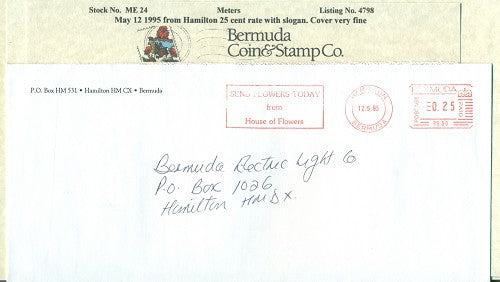 Stock No. ME 24 Meters Listing No. 4798
May 12 1995 from Hamilton 25 cent rate with slogan. Cover very fine
Bermuda
Coin&Stamp Co.
P.O. Box HM 531 • Hamilton HM CX • Bermuda
SEND FLOWERS TODAY
from
House of Flowers
HAMILTON
12.5.95
BERMUDA
BERMUDA
0.25
PAID
Bermuda Electric Light Co
P.O. Box 1026,
Hamilton HM DX.